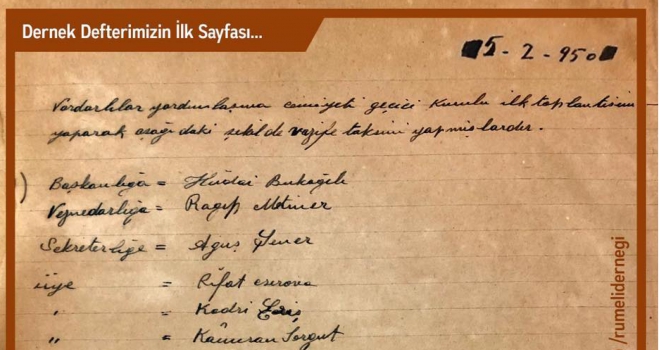 Dernek Defterimizin İlk Sayfası...
5-2-950
Vardarlılar yardımlaşma cemiyeti geçici kurulu ilk toplantısını
yaparak aşağıdaki şekilde vazife taksimi yapmışlardır.
Başkanlığa = Hüdai
Veznedarlığa = Ragıp
Sekreterliğe = Şener
üye = Rifat
" = Kadri
" = Kâmuran
/rumelidernegi